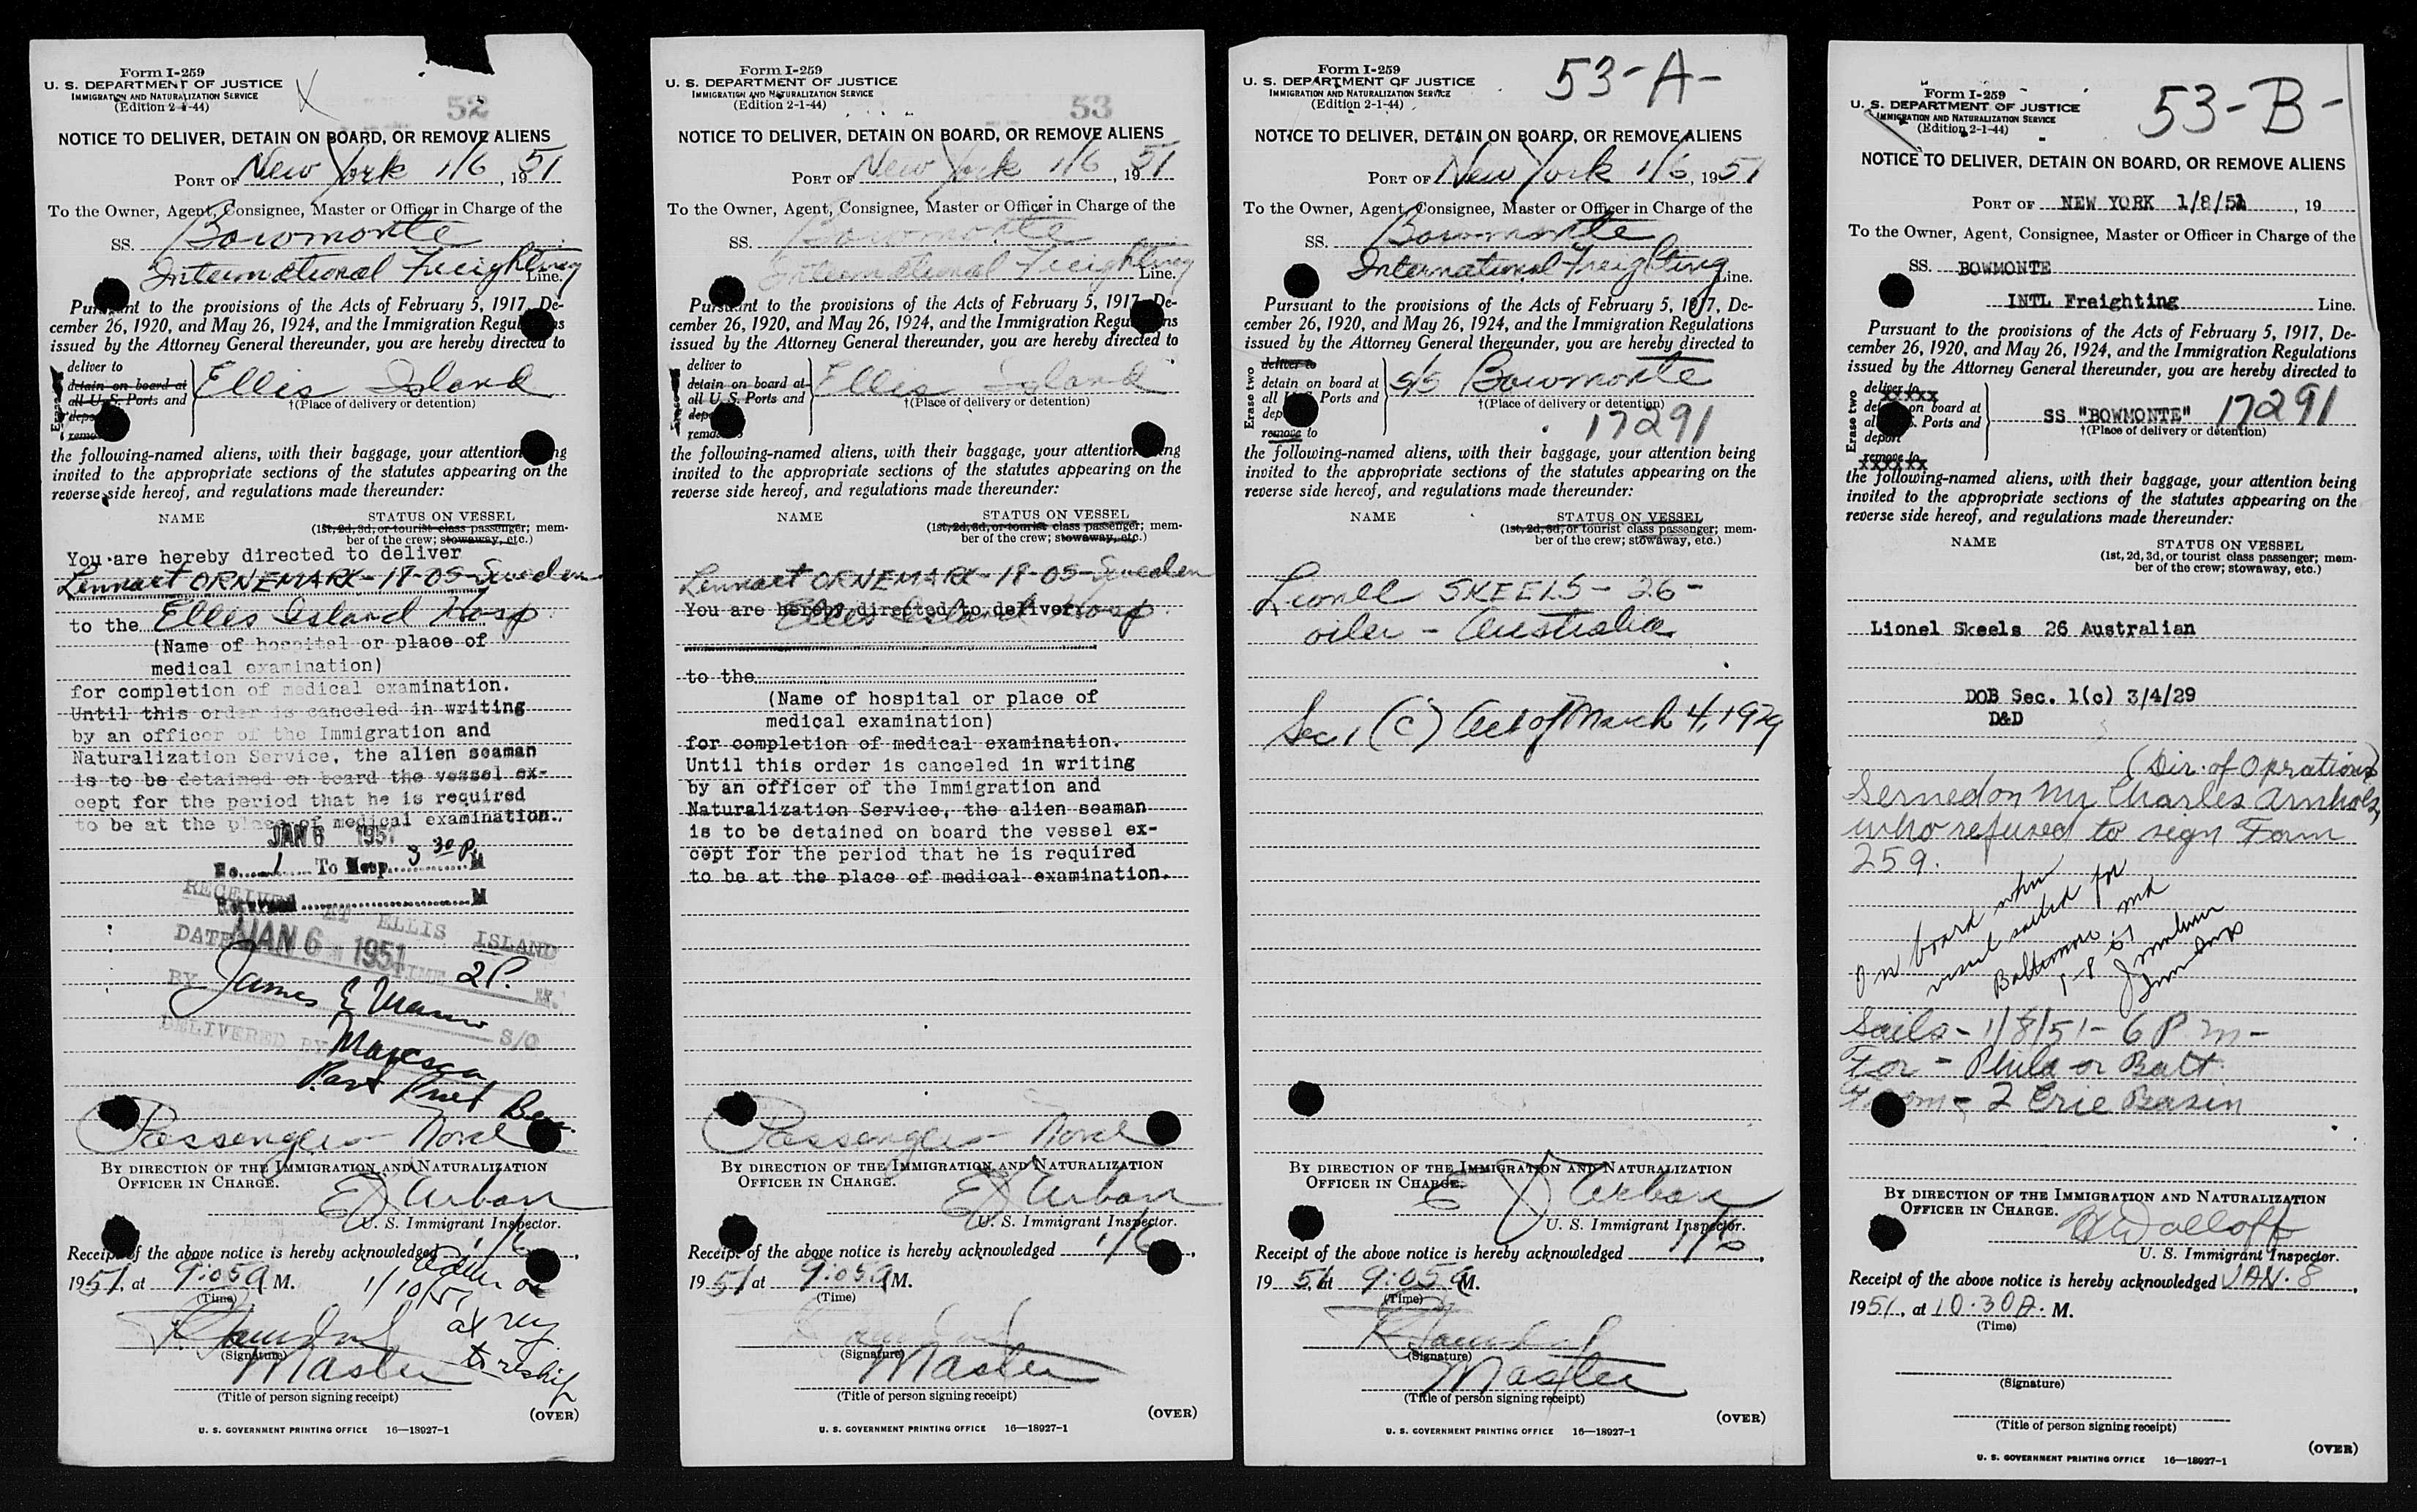 Form I-259
U. S. DEPARTMENT OF JUSTICE
IMMIGRATION AND NATURALIZATION SERVICE
(Edition 2-1-44)
X
52
NOTICE TO DELIVER, DETAIN ON BOARD, OR REMOVE ALIENS
PORT OF New York 1/6, 1951
To the Owner, Agent, Consignee, Master or Officer in Charge of the
SS. Bowmonte
International Freighting Line.
Pursuant to the provisions of the Acts of February 5, 1917, De-
cember 26, 1920, and May 26, 1924, and the Immigration Regulations
issued by the Attorney General thereunder, you are hereby directed to
deliver to
detain on board at
all U. S. Ports and
Ellis Island
†(Place of delivery or detention)
the following-named aliens, with their baggage, your attention being
invited to the appropriate sections of the statutes appearing on the
reverse side hereof, and regulations made thereunder:
NAME STATUS ON VESSEL
(1st, 2d, 3d, or tourist class passenger; mem-
ber of the crew; stowaway, etc.)
You are hereby directed to deliver
Lennart ORNEMARK - 18 - OS - Sweden
to the Ellis Island Hosp
(Name of hospital or place of
medical examination)
for completion of medical examination.
Until this order is canceled in writing
by an officer of the Immigration and
Naturalization Service, the alien seaman
is to be detained on board the vessel ex-
cept for the period that he is required
to be at the place of medical examination.
JAN 6 1951
No. 1 To Hosp. 3 30 P. M
Returned M
RECEIVED AT ELLIS ISLAND
DATE JAN 6 1951 TIME 2 P. M.
BY James E
S/O
DELIVERED BY
Passengers - None
BY DIRECTION OF THE IMMIGRATION AND NATURALIZATION
OFFICER IN CHARGE.
E D Urban
U. S. Immigrant Inspector.
Receipt of the above notice is hereby acknowledged 1/6,
1951, at 9:05 A M.
(Time)
1/10/51
to reship
(Signature)
Master
(Title of person signing receipt)
(OVER)
U. S. GOVERNMENT PRINTING OFFICE 16—18927-1
Form I-259
U. S. DEPARTMENT OF JUSTICE
IMMIGRATION AND NATURALIZATION SERVICE
(Edition 2-1-44)
53
NOTICE TO DELIVER, DETAIN ON BOARD, OR REMOVE ALIENS
PORT OF New York 1/6, 1951
To the Owner, Agent, Consignee, Master or Officer in Charge of the
SS. Bowmonte
International Freighting Line.
Pursuant to the provisions of the Acts of February 5, 1917, De-
cember 26, 1920, and May 26, 1924, and the Immigration Regulations
issued by the Attorney General thereunder, you are hereby directed to
deliver to
detain on board at
all U. S. Ports and
Ellis Island
†(Place of delivery or detention)
the following-named aliens, with their baggage, your attention being
invited to the appropriate sections of the statutes appearing on the
reverse side hereof, and regulations made thereunder:
NAME STATUS ON VESSEL
(1st, 2d, 3d, or tourist class passenger; mem-
ber of the crew; stowaway, etc.)
Lennart ORNEMARK - 18 - OS - Sweden
You are hereby directed to deliver
Ellis Island Hosp
to the
(Name of hospital or place of
medical examination)
for completion of medical examination.
Until this order is canceled in writing
by an officer of the Immigration and
Naturalization Service, the alien seaman
is to be detained on board the vessel ex-
cept for the period that he is required
to be at the place of medical examination.
Passengers - None
BY DIRECTION OF THE IMMIGRATION AND NATURALIZATION
OFFICER IN CHARGE.
E D Urban
U. S. Immigrant Inspector.
Receipt of the above notice is hereby acknowledged 1/6,
1951 at 9:05 A M.
(Time)
(Signature)
Master
(Title of person signing receipt)
(OVER)
U. S. GOVERNMENT PRINTING OFFICE 16—18927-1
Form I-259
U. S. DEPARTMENT OF JUSTICE
IMMIGRATION AND NATURALIZATION SERVICE
(Edition 2-1-44)
53-A-
NOTICE TO DELIVER, DETAIN ON BOARD, OR REMOVE ALIENS
PORT OF New York 1/6, 1951
To the Owner, Agent, Consignee, Master or Officer in Charge of the
SS. Bowmonte
International Freighting Line.
Pursuant to the provisions of the Acts of February 5, 1917, De-
cember 26, 1920, and May 26, 1924, and the Immigration Regulations
issued by the Attorney General thereunder, you are hereby directed to
Erase two
deliver to
detain on board at
all U. S. Ports and
remove to
S/S Bowmonte
†(Place of delivery or detention)
17291
the following-named aliens, with their baggage, your attention being
invited to the appropriate sections of the statutes appearing on the
reverse side hereof, and regulations made thereunder:
NAME STATUS ON VESSEL
(1st, 2d, 3d, or tourist class passenger; mem-
ber of the crew; stowaway, etc.)
Lionel SKEELS - 26 -
oiler - Australia
Sec. 1 (c) Act of March 4, 1929
BY DIRECTION OF THE IMMIGRATION AND NATURALIZATION
OFFICER IN CHARGE.
E D Urban
U. S. Immigrant Inspector.
Receipt of the above notice is hereby acknowledged 1/6,
1951, at 9:05 A M.
(Time)
(Signature)
Master
(Title of person signing receipt)
(OVER)
U. S. GOVERNMENT PRINTING OFFICE 16—18927-1
Form I-259
U. S. DEPARTMENT OF JUSTICE
IMMIGRATION AND NATURALIZATION SERVICE
(Edition 2-1-44)
53-B-
NOTICE TO DELIVER, DETAIN ON BOARD, OR REMOVE ALIENS
PORT OF NEW YORK 1/8/51, 19
To the Owner, Agent, Consignee, Master or Officer in Charge of the
SS. BOWMONTE
INTL Freighting Line.
Pursuant to the provisions of the Acts of February 5, 1917, De-
cember 26, 1920, and May 26, 1924, and the Immigration Regulations
issued by the Attorney General thereunder, you are hereby directed to
Erase two
deliver to
detain on board at
all U. S. Ports and
deport
remove to
SS "BOWMONTE" 17291
†(Place of delivery or detention)
the following-named aliens, with their baggage, your attention being
invited to the appropriate sections of the statutes appearing on the
reverse side hereof, and regulations made thereunder:
NAME STATUS ON VESSEL
(1st, 2d, 3d, or tourist class passenger; mem-
ber of the crew; stowaway, etc.)
Lionel Skeels 26 Australian
DOB Sec. 1(c) 3/4/29
D&D
(Dir. of Oprations)
Serned on Mr Charles Arnholz,
who refused to sign Form
259.
On board when
vessel sailed for
Baltimore md
1-8-51
Sails - 1/8/51 - 6 P. m -
For - Phila or Balt.
From - 2 Erie Basin
BY DIRECTION OF THE IMMIGRATION AND NATURALIZATION
OFFICER IN CHARGE.
U. S. Immigrant Inspector.
Receipt of the above notice is hereby acknowledged JAN. 8,
1951, at 10.30 A. M.
(Time)
(Signature)
(Title of person signing receipt)
(OVER)
U. S. GOVERNMENT PRINTING OFFICE 16—18927-1